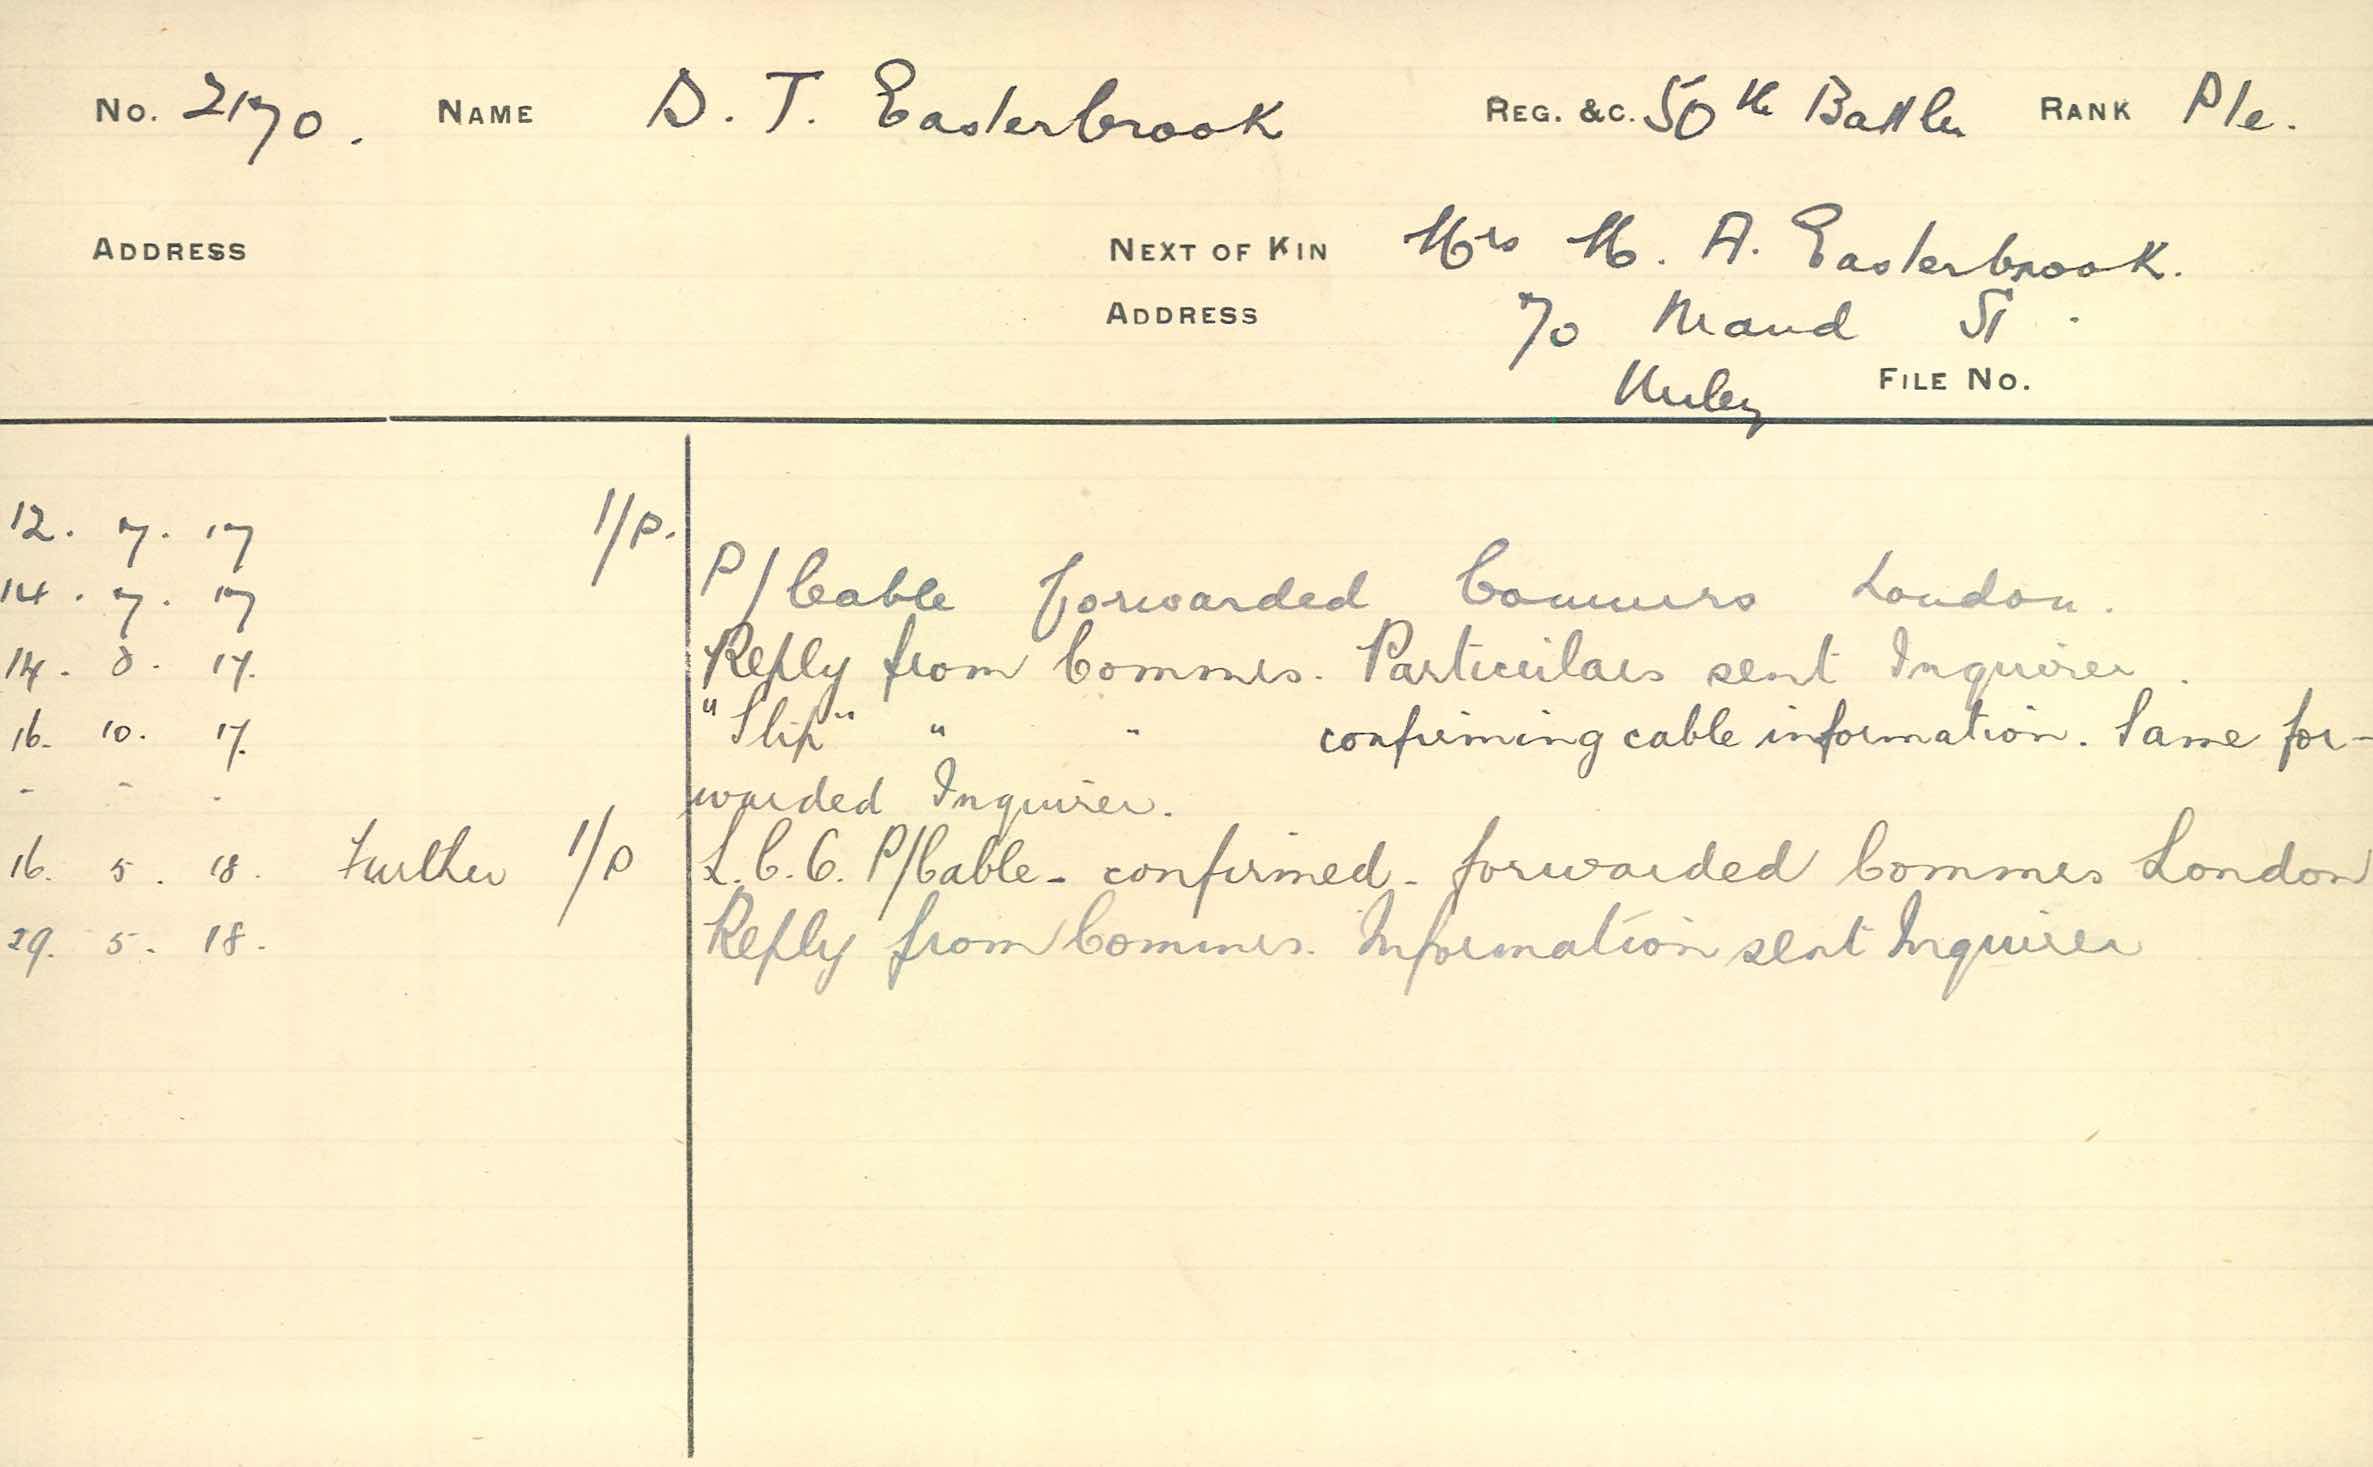 No. 2170. NAME D. T. Easterbrook REG. &C. 50th Battln RANK Pte.
ADDRESS NEXT OF KIN Mrs M. A. Easterbrook.
ADDRESS 70 Maud St.
Unley FILE No.
12. 7. 17 1/P.
14. 7. 17 P/Cable forwarded Commrs London.
14. 8. 17. Reply from Commrs. Particulars sent Inquirer.
16. 10. 17. "Slip" " " confirming cable information. Same for-
- - - warded Inquirer.
16. 5. 18. Further 1/P L.C.C. P/Cable - confirmed - forwarded Commrs London
29. 5. 18. Reply from Commrs. Information sent Inquirer